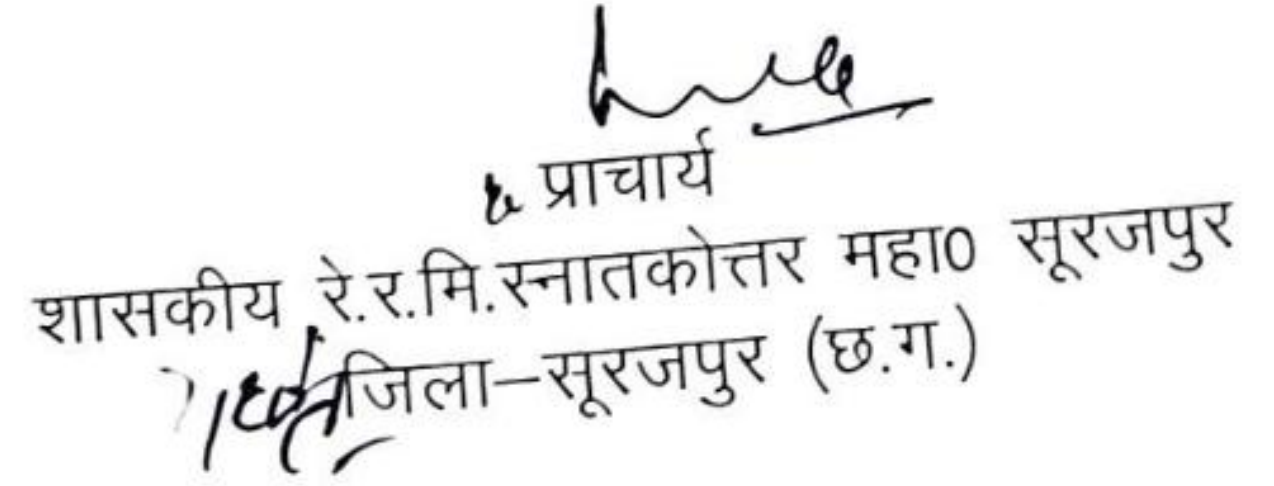 प्राचार्य
शासकीय रे.र.मि.स्नातकोत्तर महा0 सूरजपुर
जिला–सूरजपुर (छ.ग.)